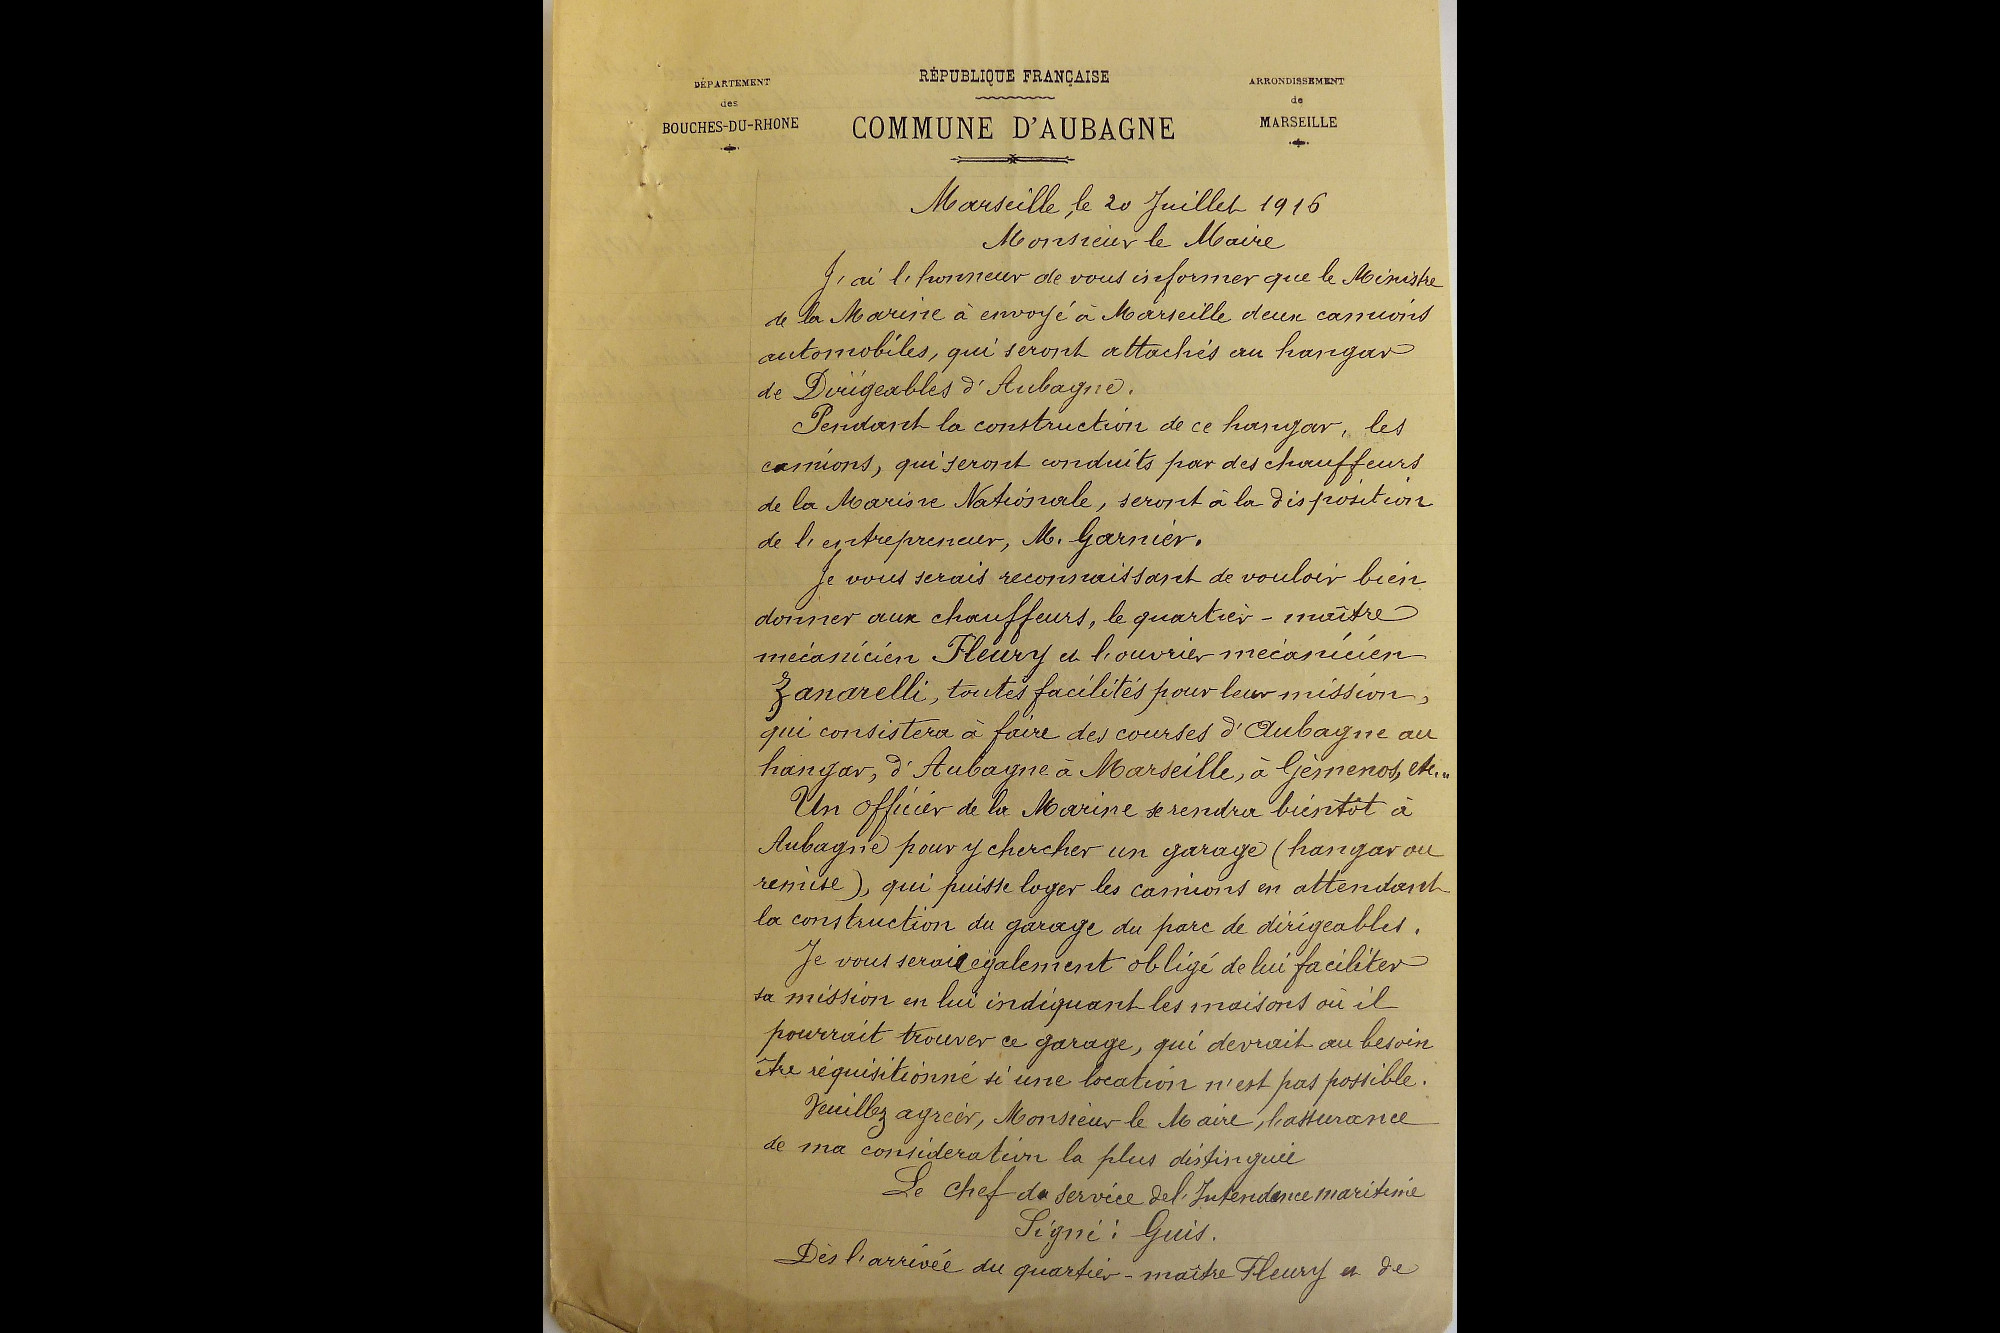 RÉPUBLIQUE FRANÇAISE
DÉPARTEMENT
des
BOUCHES-DU-RHONE
COMMUNE D'AUBAGNE
ARRONDISSEMENT
de
MARSEILLE
Marseille, le 20 Juillet 1916
Monsieur le Maire
J'ai l'honneur de vous informer que le Ministre
de la Marine à envoyé à Marseille deux camions
automobiles, qui seront attachés au hangar
de Dirigeables d'Aubagne.
Pendant la construction de ce hangar, les
camions, qui seront conduits par des chauffeurs
de la Marine Nationale, seront à la disposition
de l'entrepreneur, M. Garnier.
Je vous serais reconnaissant de vouloir bien
donner aux chauffeurs, le quartier-maître
mécanicien Fleury et l'ouvrier mécanicien
Zanarelli, toutes facilités pour leur mission,
qui consistera à faire des courses d'Aubagne au
hangar, d'Aubagne à Marseille, à Gémenos, etc...
Un officier de la Marine se rendra bientôt à
Aubagne pour y chercher un garage (hangar ou
remise), qui puisse loger les camions en attendant
la construction du garage du parc de dirigeables.
Je vous serais également obligé de lui faciliter
sa mission en lui indiquant les maisons où il
pourrait trouver ce garage, qui devrait au besoin
être réquisitionné si une location n'est pas possible.
Veuillez agréer, Monsieur le Maire, l'assurance
de ma considération la plus distinguée
Le chef du service de l'Intendance maritime
Signé: Guis.
Dès l'arrivée du quartier-maître Fleury et de